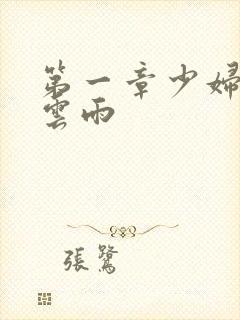 第一章少婦
雲雨
張鷺